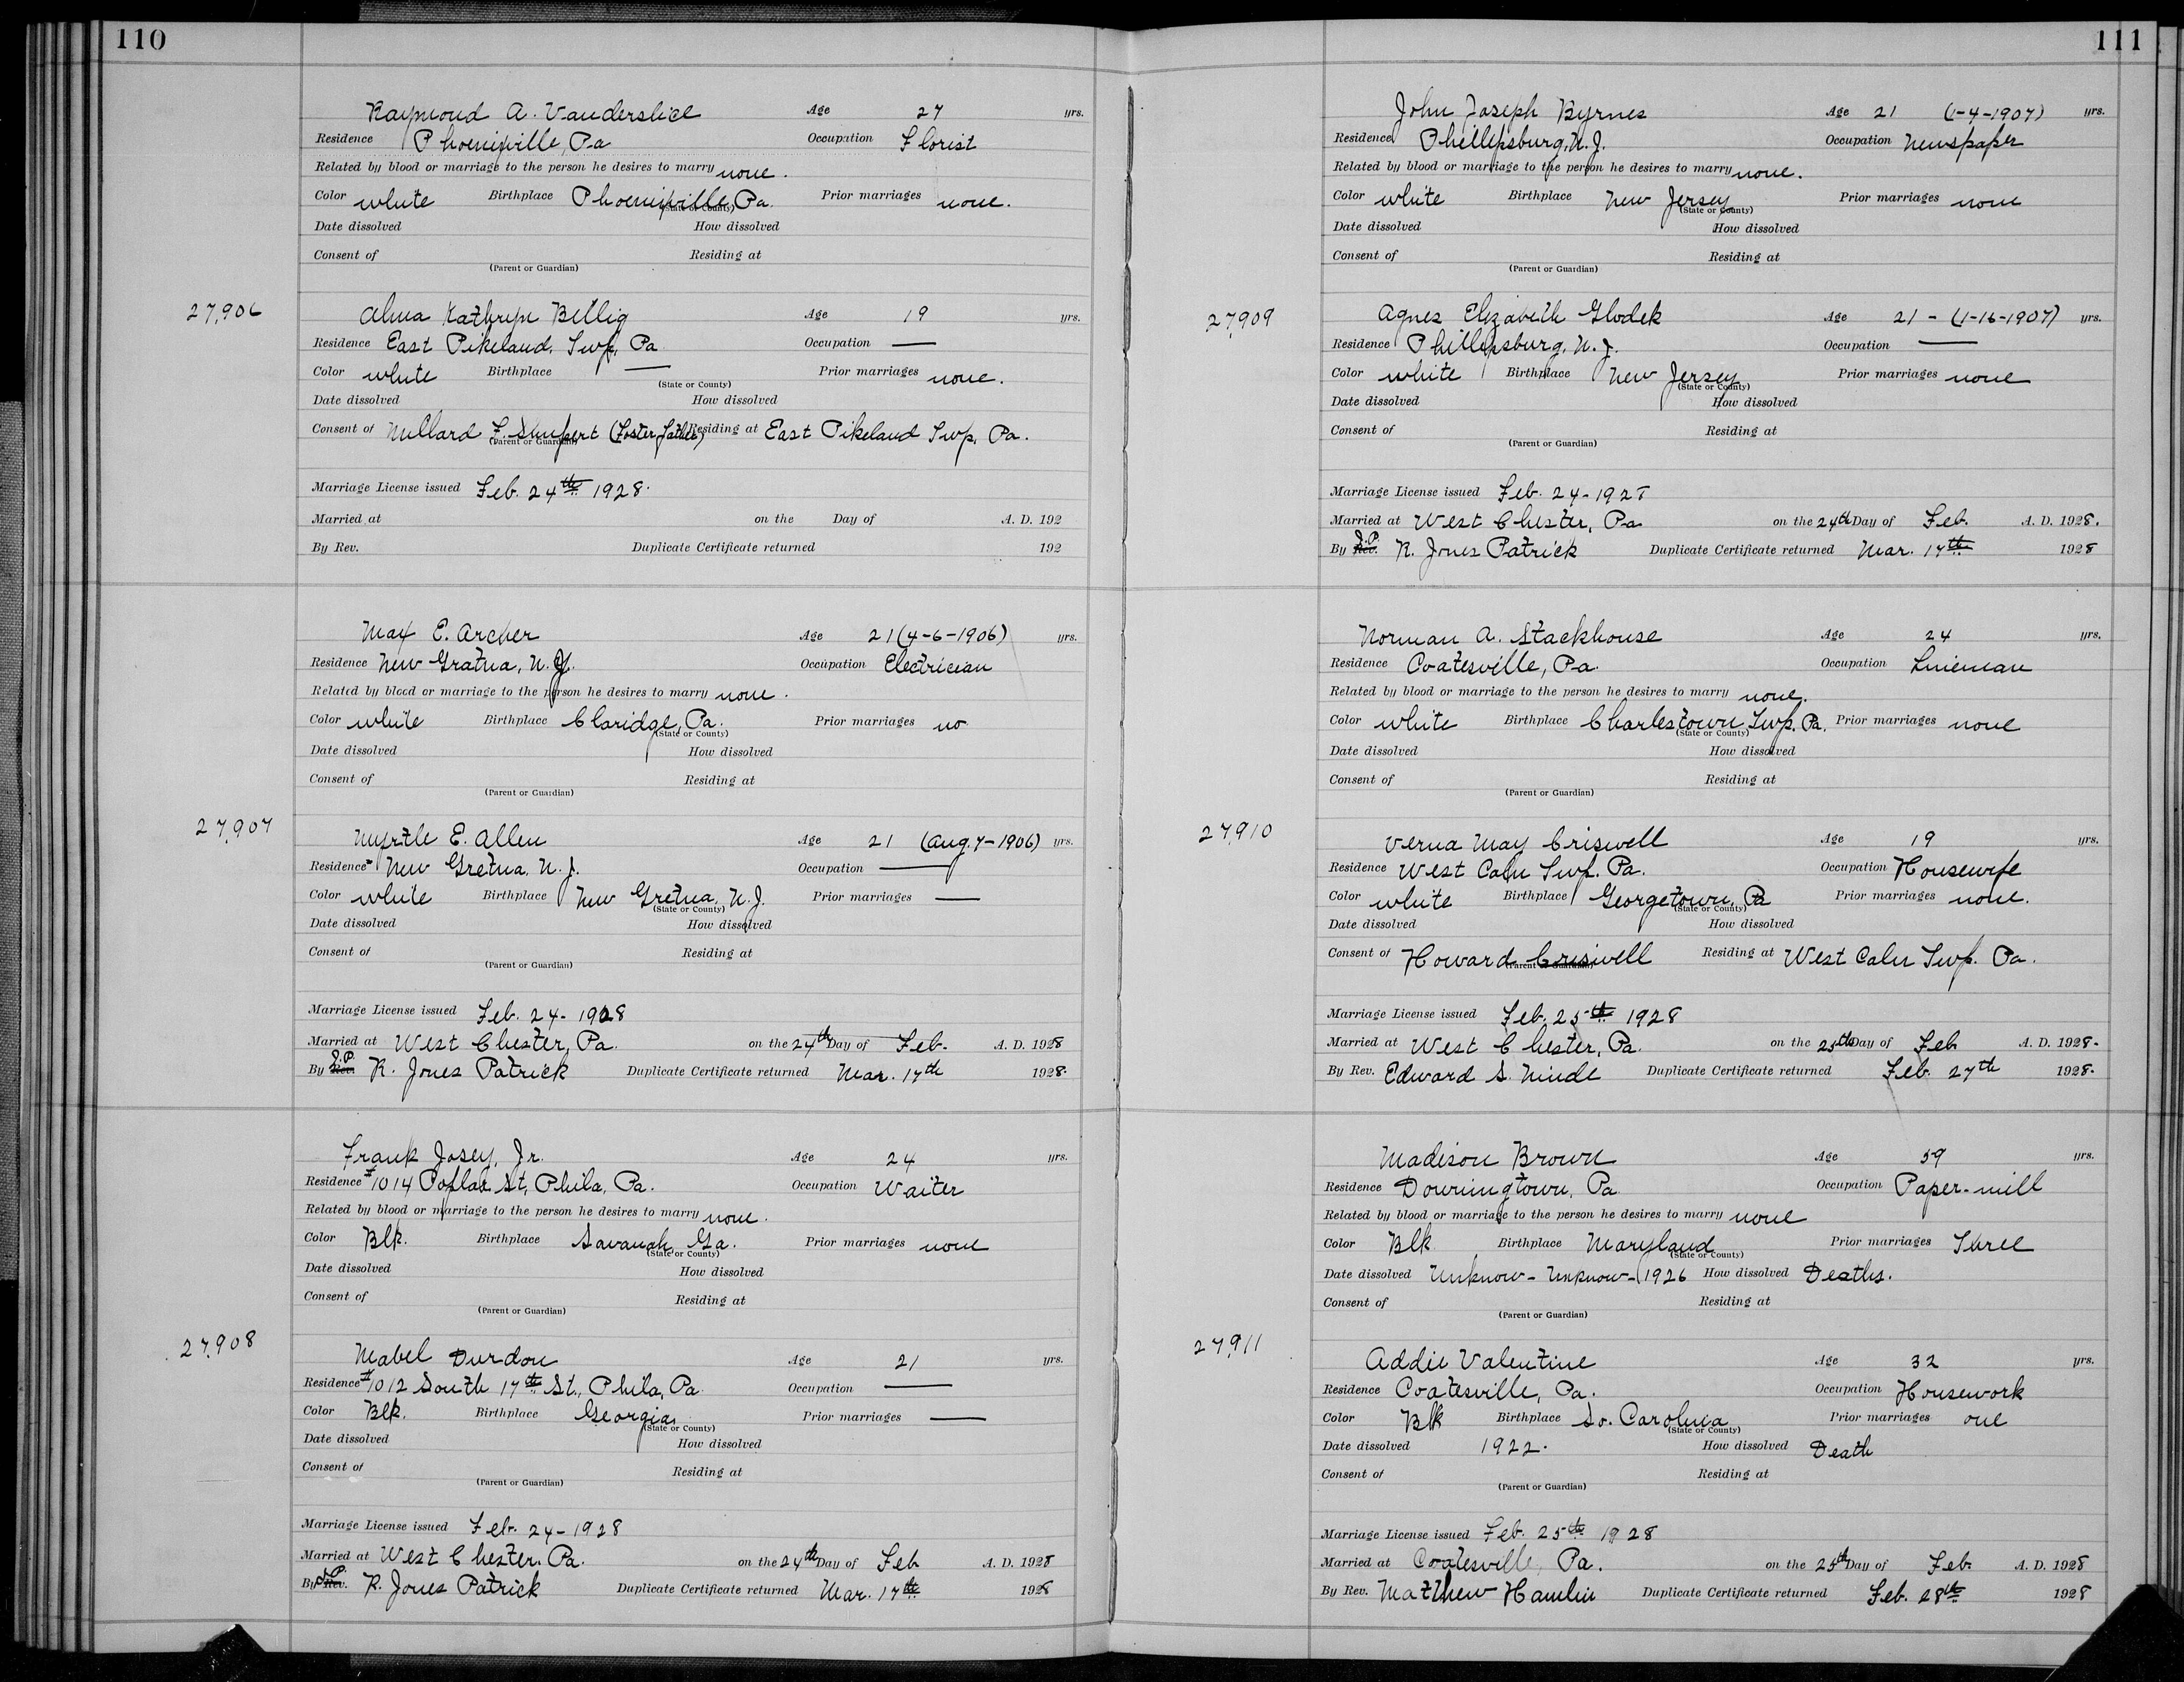 110
Raymond A. Vanderslice Age 27 yrs.
Residence Phoenixville, Pa Occupation Florist
Related by blood or marriage to the person he desires to marry none.
Color white Birthplace Phoenixville, Pa. (State or County) Prior marriages none.
Date dissolved How dissolved
Consent of (Parent or Guardian) Residing at
27,906
Alma Kathryn Billig Age 19 yrs.
Residence East Pikeland, Twp, Pa Occupation —
Color white Birthplace — (State or County) Prior marriages none.
Date dissolved How dissolved
Consent of Millard F. (Foster father) (Parent or Guardian) Residing at East Pikeland Twp, Pa.
Marriage License issued Feb. 24th 1928.
Married at on the Day of A. D. 192
By Rev. Duplicate Certificate returned 192
Max E. Archer Age 21 (4-6-1906) yrs.
Residence New Gratna, N. J. Occupation Electrician
Related by blood or marriage to the person he desires to marry none.
Color white Birthplace Claridge, Pa. (State or County) Prior marriages no
Date dissolved How dissolved
Consent of (Parent or Guardian) Residing at
27,907
Myrtle E. Allen Age 21 (Aug. 7-1906) yrs.
Residence New Gretna, N. J. Occupation —
Color white Birthplace New Gretna, N. J. (State or County) Prior marriages —
Date dissolved How dissolved
Consent of (Parent or Guardian) Residing at
Marriage License issued Feb. 24-1928
Married at West Chester, Pa. on the 24th Day of Feb. A. D. 1928
By J.P. Rev. R. Jones Patrick Duplicate Certificate returned Mar. 17th 1928.
Frank Josey, Jr. Age 24 yrs.
Residence #1014 Poplar St, Phila, Pa. Occupation Waiter
Related by blood or marriage to the person he desires to marry none.
Color Blk. Birthplace Savanah, Ga. (State or County) Prior marriages none
Date dissolved How dissolved
Consent of (Parent or Guardian) Residing at
27,908
Mabel Durdon Age 21 yrs.
Residence #1012 South 17th St., Phila, Pa. Occupation —
Color Blk. Birthplace Georgia (State or County) Prior marriages —
Date dissolved How dissolved
Consent of (Parent or Guardian) Residing at
Marriage License issued Feb. 24-1928
Married at West Chester. Pa. on the 24th Day of Feb A. D. 1928
By J.P. Rev. R. Jones Patrick Duplicate Certificate returned Mar. 17th 1928
111
John Joseph Byrnes Age 21 (1-4-1907) yrs.
Residence Phillipsburg, N. J. Occupation Newspaper
Related by blood or marriage to the person he desires to marry none.
Color white Birthplace New Jersey (State or County) Prior marriages none
Date dissolved How dissolved
Consent of (Parent or Guardian) Residing at
27,909
Agnes Elizabeth Glodek Age 21-(1-16-1907) yrs.
Residence Phillipsburg, N. J. Occupation —
Color white Birthplace New Jersey (State or County) Prior marriages none
Date dissolved How dissolved
Consent of (Parent or Guardian) Residing at
Marriage License issued Feb. 24-1928
Married at West Chester, Pa on the 24th Day of Feb. A. D. 1928.
By J.P. Rev. R. Jones Patrick Duplicate Certificate returned Mar. 17th 1928
Norman A. Stackhouse Age 24 yrs.
Residence Coatesville, Pa. Occupation Lineman
Related by blood or marriage to the person he desires to marry none.
Color white Birthplace Charlestown Twp. Pa. (State or County) Prior marriages none
Date dissolved How dissolved
Consent of (Parent or Guardian) Residing at
27,910
Verna May Criswell Age 19 yrs.
Residence West Caln Twp. Pa. Occupation Housewife
Color white Birthplace Georgetown, Pa (State or County) Prior marriages none.
Date dissolved How dissolved
Consent of Howard Criswell (Parent or Guardian) Residing at West Caln Twp. Pa.
Marriage License issued Feb. 25th 1928
Married at West Chester, Pa. on the 25th Day of Feb A. D. 1928.
By Rev. Edward S. Ninde Duplicate Certificate returned Feb. 27th 1928.
Madison Brown Age 59 yrs.
Residence Downingtown, Pa. Occupation Paper-mill
Related by blood or marriage to the person he desires to marry none
Color Blk Birthplace Maryland (State or County) Prior marriages Three
Date dissolved Unknow-Unknow-1926 How dissolved Deaths.
Consent of (Parent or Guardian) Residing at
27,911
Addie Valentine Age 32 yrs.
Residence Coatesville, Pa. Occupation Housework
Color Blk Birthplace So. Carolina (State or County) Prior marriages one
Date dissolved 1922. How dissolved Death
Consent of (Parent or Guardian) Residing at
Marriage License issued Feb. 25th 1928
Married at Coatesville, Pa. on the 25th Day of Feb. A. D. 1928
By Rev. Matthew Hamlin Duplicate Certificate returned Feb. 28th 1928